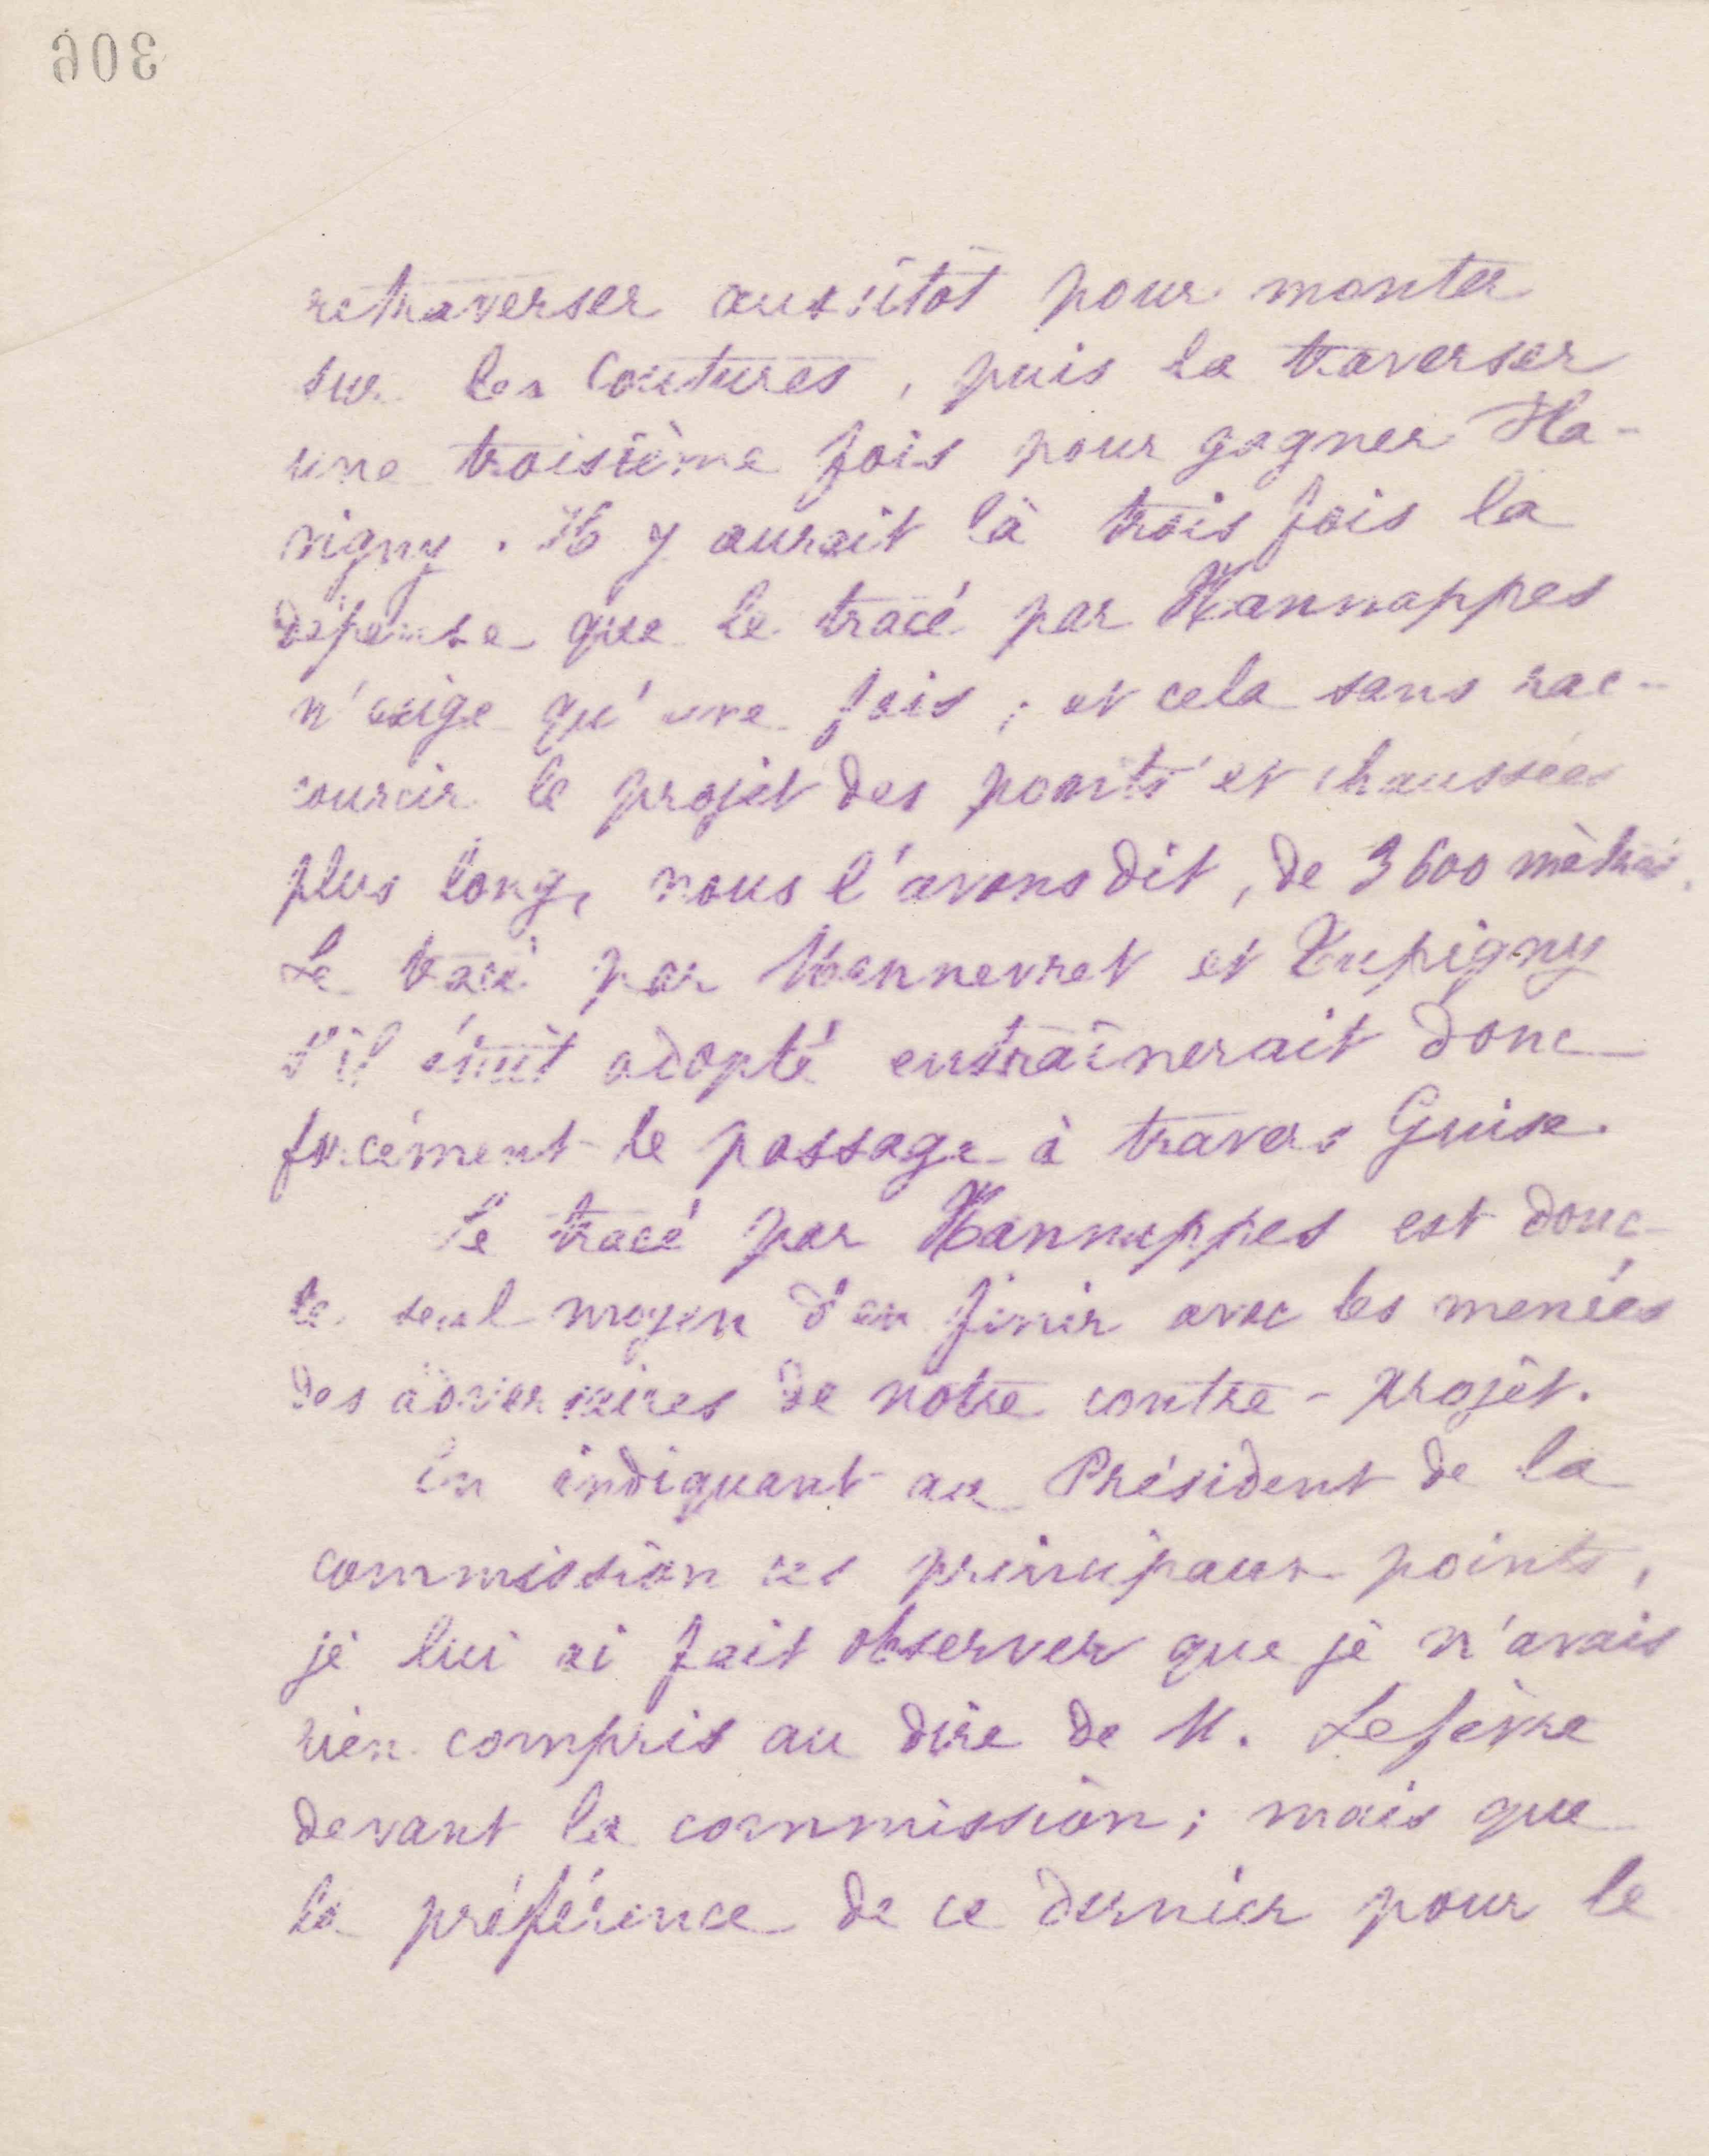 306
retraverser aussitôt pour monter
sur les Coutures, puis la traverser
une troisième fois pour gagner Fla-
vigny. Il y aurait là trois fois la
dépense que le tracé par Hannappes
n'exige qu'une fois ; et cela sans rac-
courcir le projet des ponts et chaussées
plus long, nous l'avons dit, de 3600 mètres.
Le tracé par Vennevret et Tupigny
s'il était adopté entraînerait donc
forcément le passage à travers Guise.
Le tracé par Hannappes est donc
le seul moyen d'en finir avec les menées
des adversaires de notre contre-projet.
En indiquant au Président de la
commission ces principaux points,
je lui ai fait observer que je n'avais
rien compris au dire de M. Lefèvre
devant la commission ; mais que
la préférence de ce dernier pour le